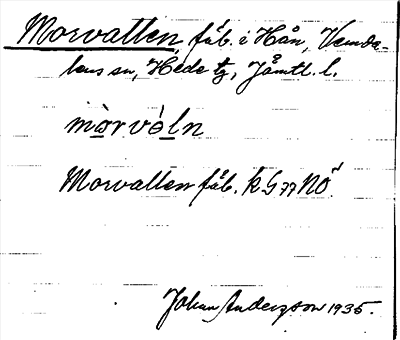 Morvallen, fäb. i Hån, Vemda-
lens sn, Hede tg, Jämtl. l.
mòrvòln
Morvallen fäb. k G 77 NÖ
Johan Anderson 1935.